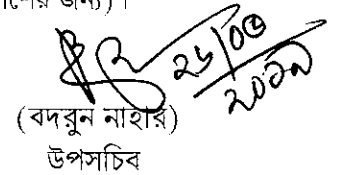 শের জন্য)।
২৬/০৫
২০১৯
(বদরুন নাহার)
উপসচিব